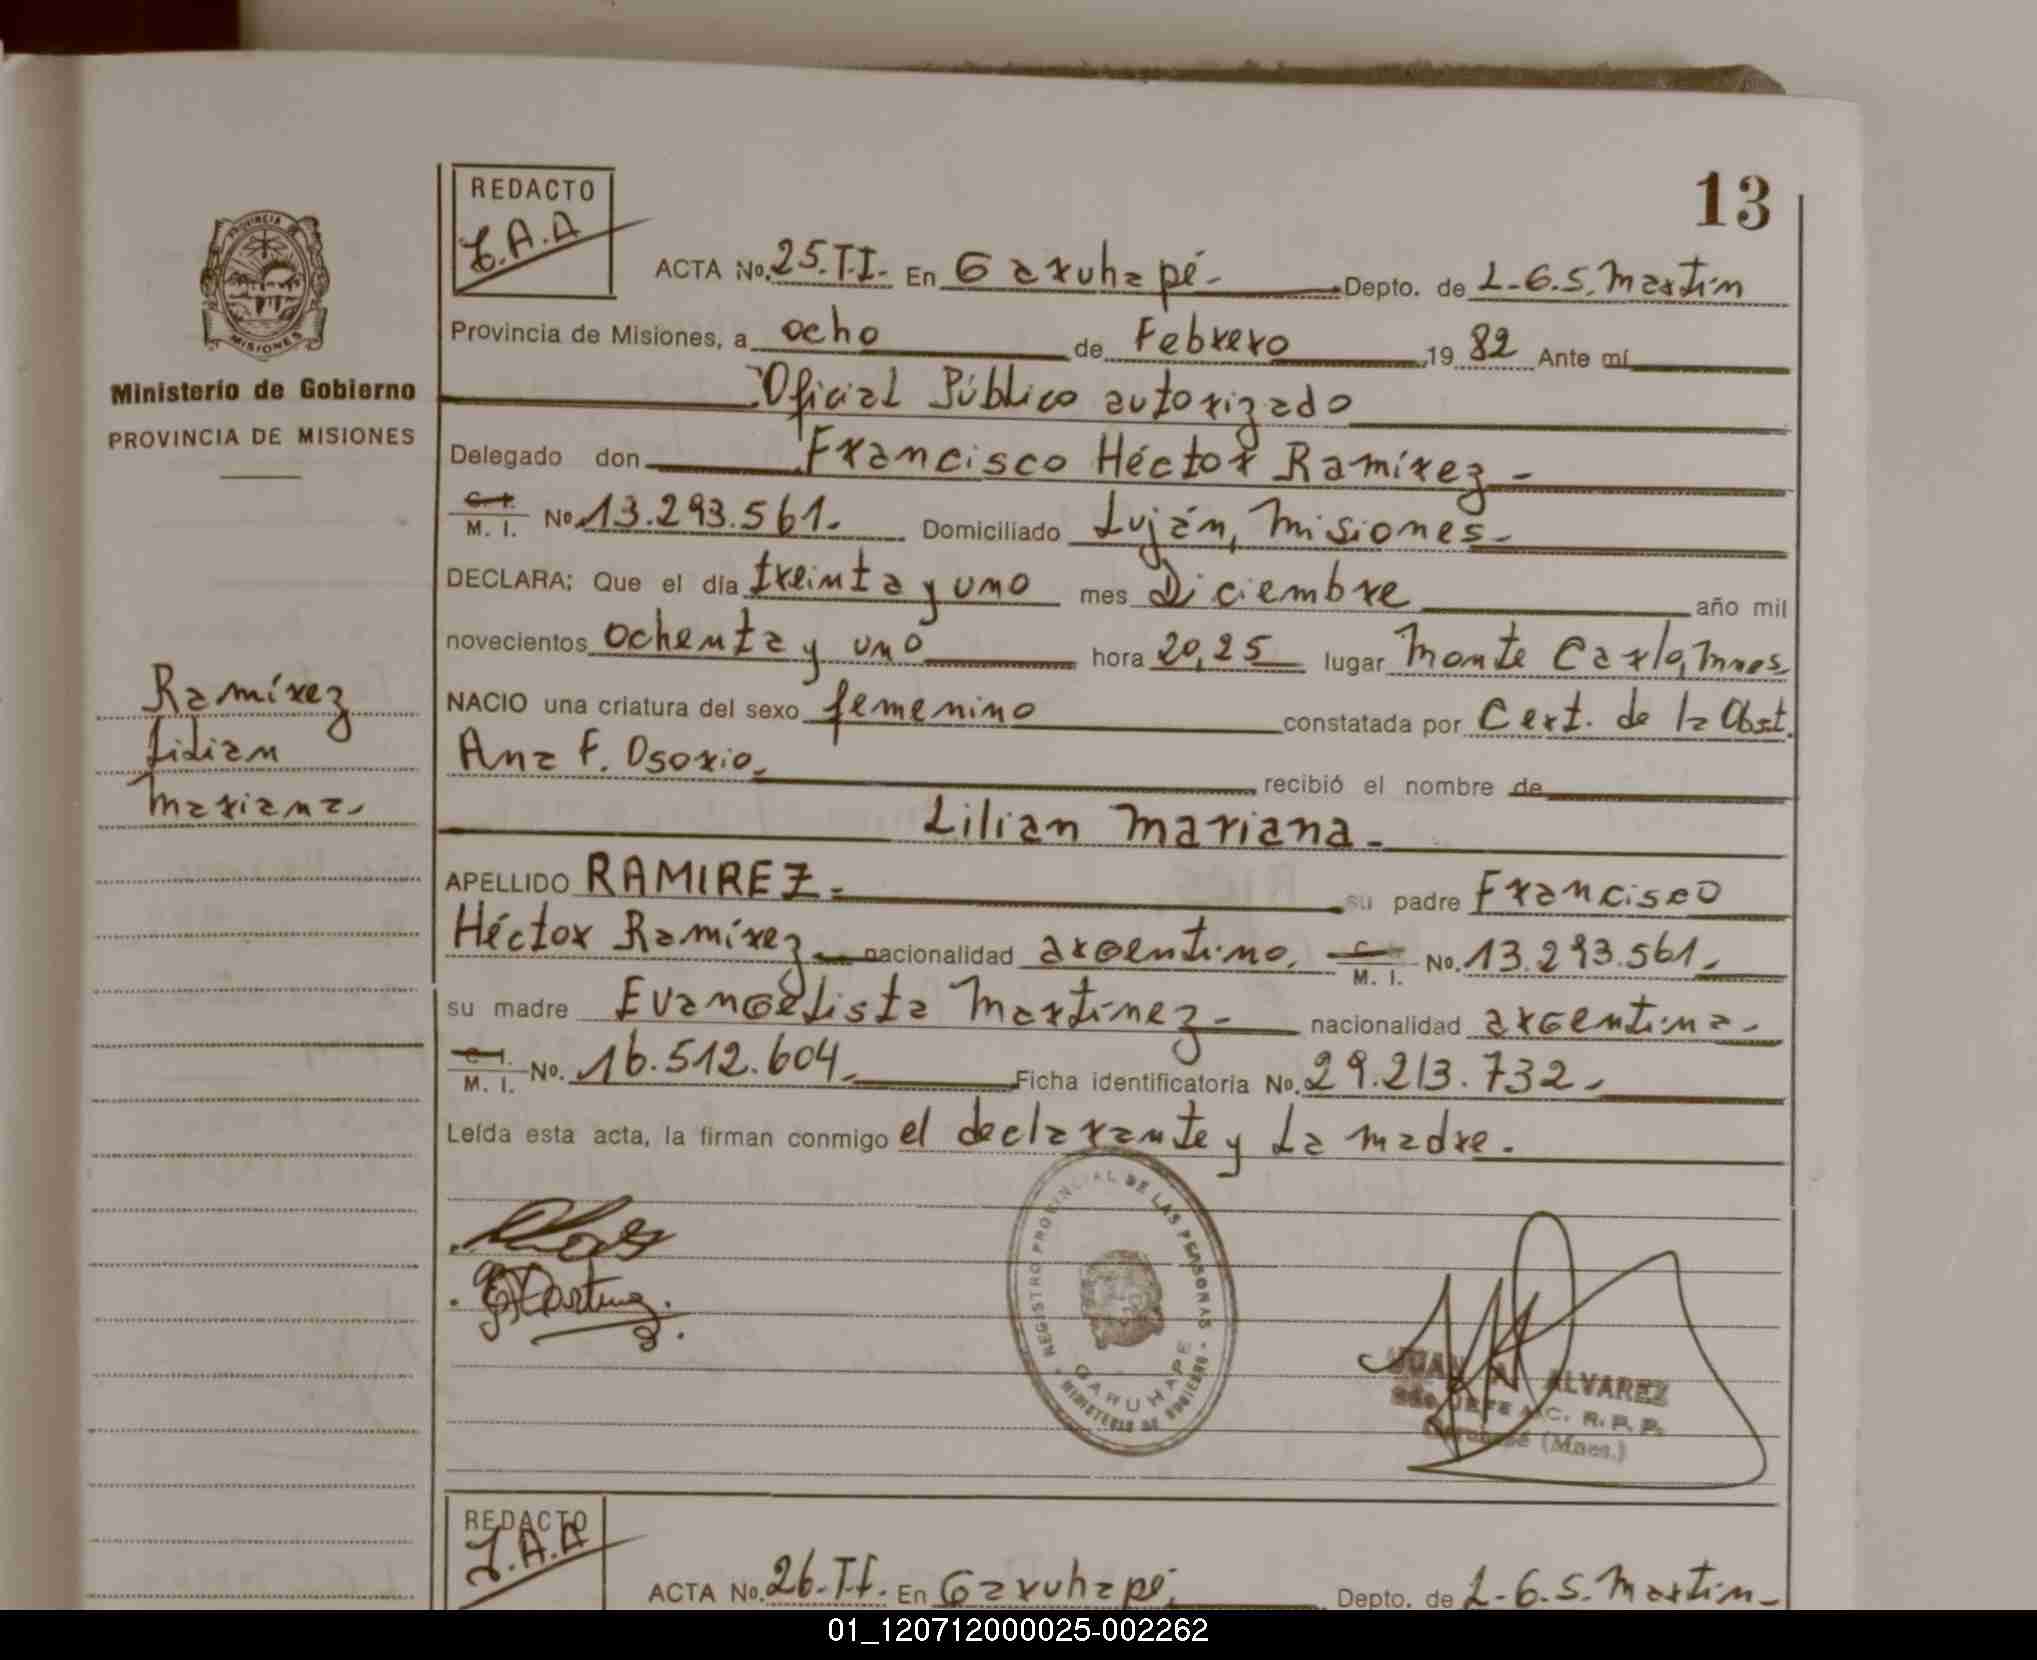 13
REDACTO
J.A.A
ACTA No. 25.T.I. En Garuhapé - Depto. de L.G.S. Martín
Provincia de Misiones, a ocho de Febrero 19 82 Ante mí
Oficial Público autorizado
Delegado don Francisco Héctor Ramírez -
C. I.
M. I. No. 13.293.561. Domiciliado Luján, Misiones -
DECLARA; Que el día treinta y uno mes Diciembre año mil
novecientos ochenta y uno hora 20,25 lugar Monte Carlo, Mnes.
NACIO una criatura del sexo femenino constatada por Cert. de la Obst.
Ana F. Osorio. recibió el nombre de
Lilian Mariana -
APELLIDO RAMIREZ - su padre Francisco
Héctor Ramírez nacionalidad argentino. M. I. No. 13.293.561 -
su madre Evangelista Martínez - nacionalidad argentina -
C. I.
M. I. No. 16.512.604 - Ficha identificatoria No. 29.213.732 -
Leída esta acta, la firman conmigo el declarante y la madre.
PROVINCIA DE
MISIONES
Ministerio de Gobierno
PROVINCIA DE MISIONES
Ramírez
Lilian
Mariana -
E Martinez.
REGISTRO PROVINCIAL DE LAS PERSONAS
GARUHAPE
MINISTERIO DE GOBIERNO
JUAN A. ALVAREZ
JEFE A/C. R. P. P.
Garuhapé (Mnes.)
REDACTO
J.A.A
ACTA No. 26.T.I. En Garuhapé Depto. de L.G.S. Martín -
01_120712000025-002262